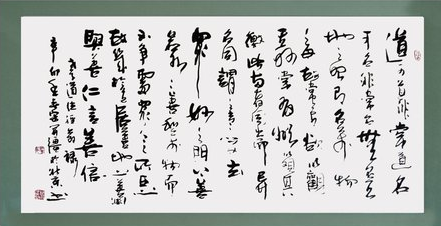 道可道非常道名
可名非常名無名天
地之始有名萬物
之母故常無欲以觀
其妙常有欲以觀其
徼此兩者同出而異
名同謂之玄玄之又玄
眾妙之門上善
若水水善利萬物而
不爭處眾人之所惡
故幾於道居善地心善淵
與善仁言善信
老子道德經節錄
辛卯年於北京